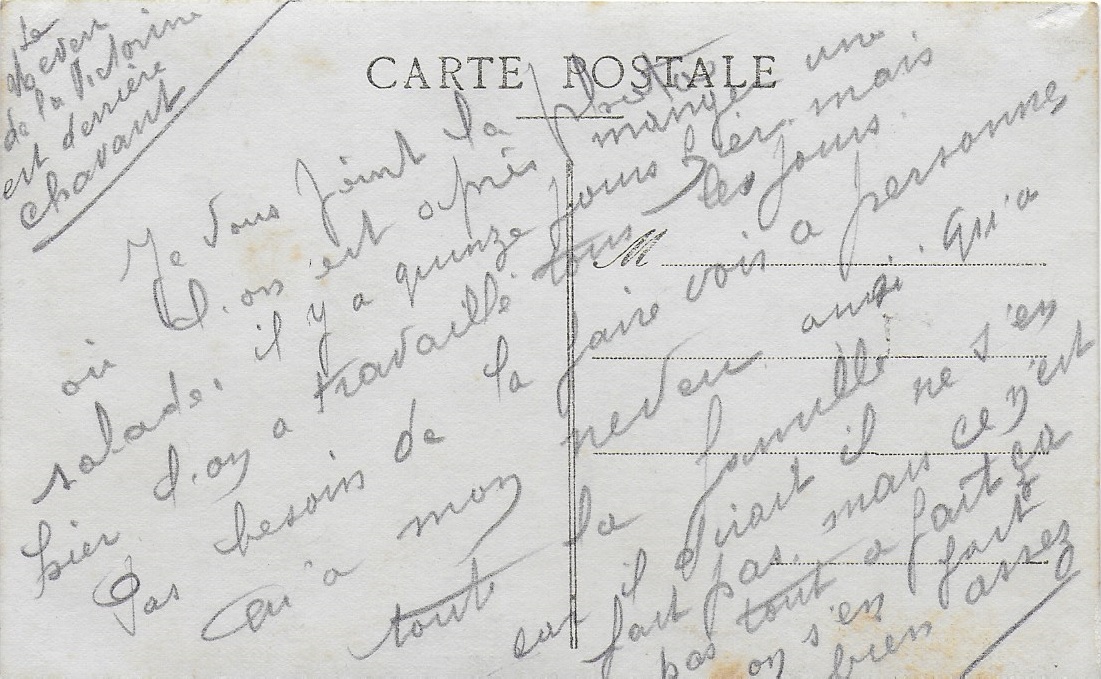 Le
neveu
de la Victorine
est derrière
Chavant
CARTE POSTALE
M
Je vous joint la photo
où l'on est après manger une
salade, il y a quinze jours hier mais
hier l'on a travaillé tous les jours.
Pas besoin de la faire voir a personne
Qu'a mon neveu aussi. Qu'a
toute la famille
car il dirait il ne s'en
fait pas, mais ce n'est
pas tout a fait ça
on s'en fait
bien assez